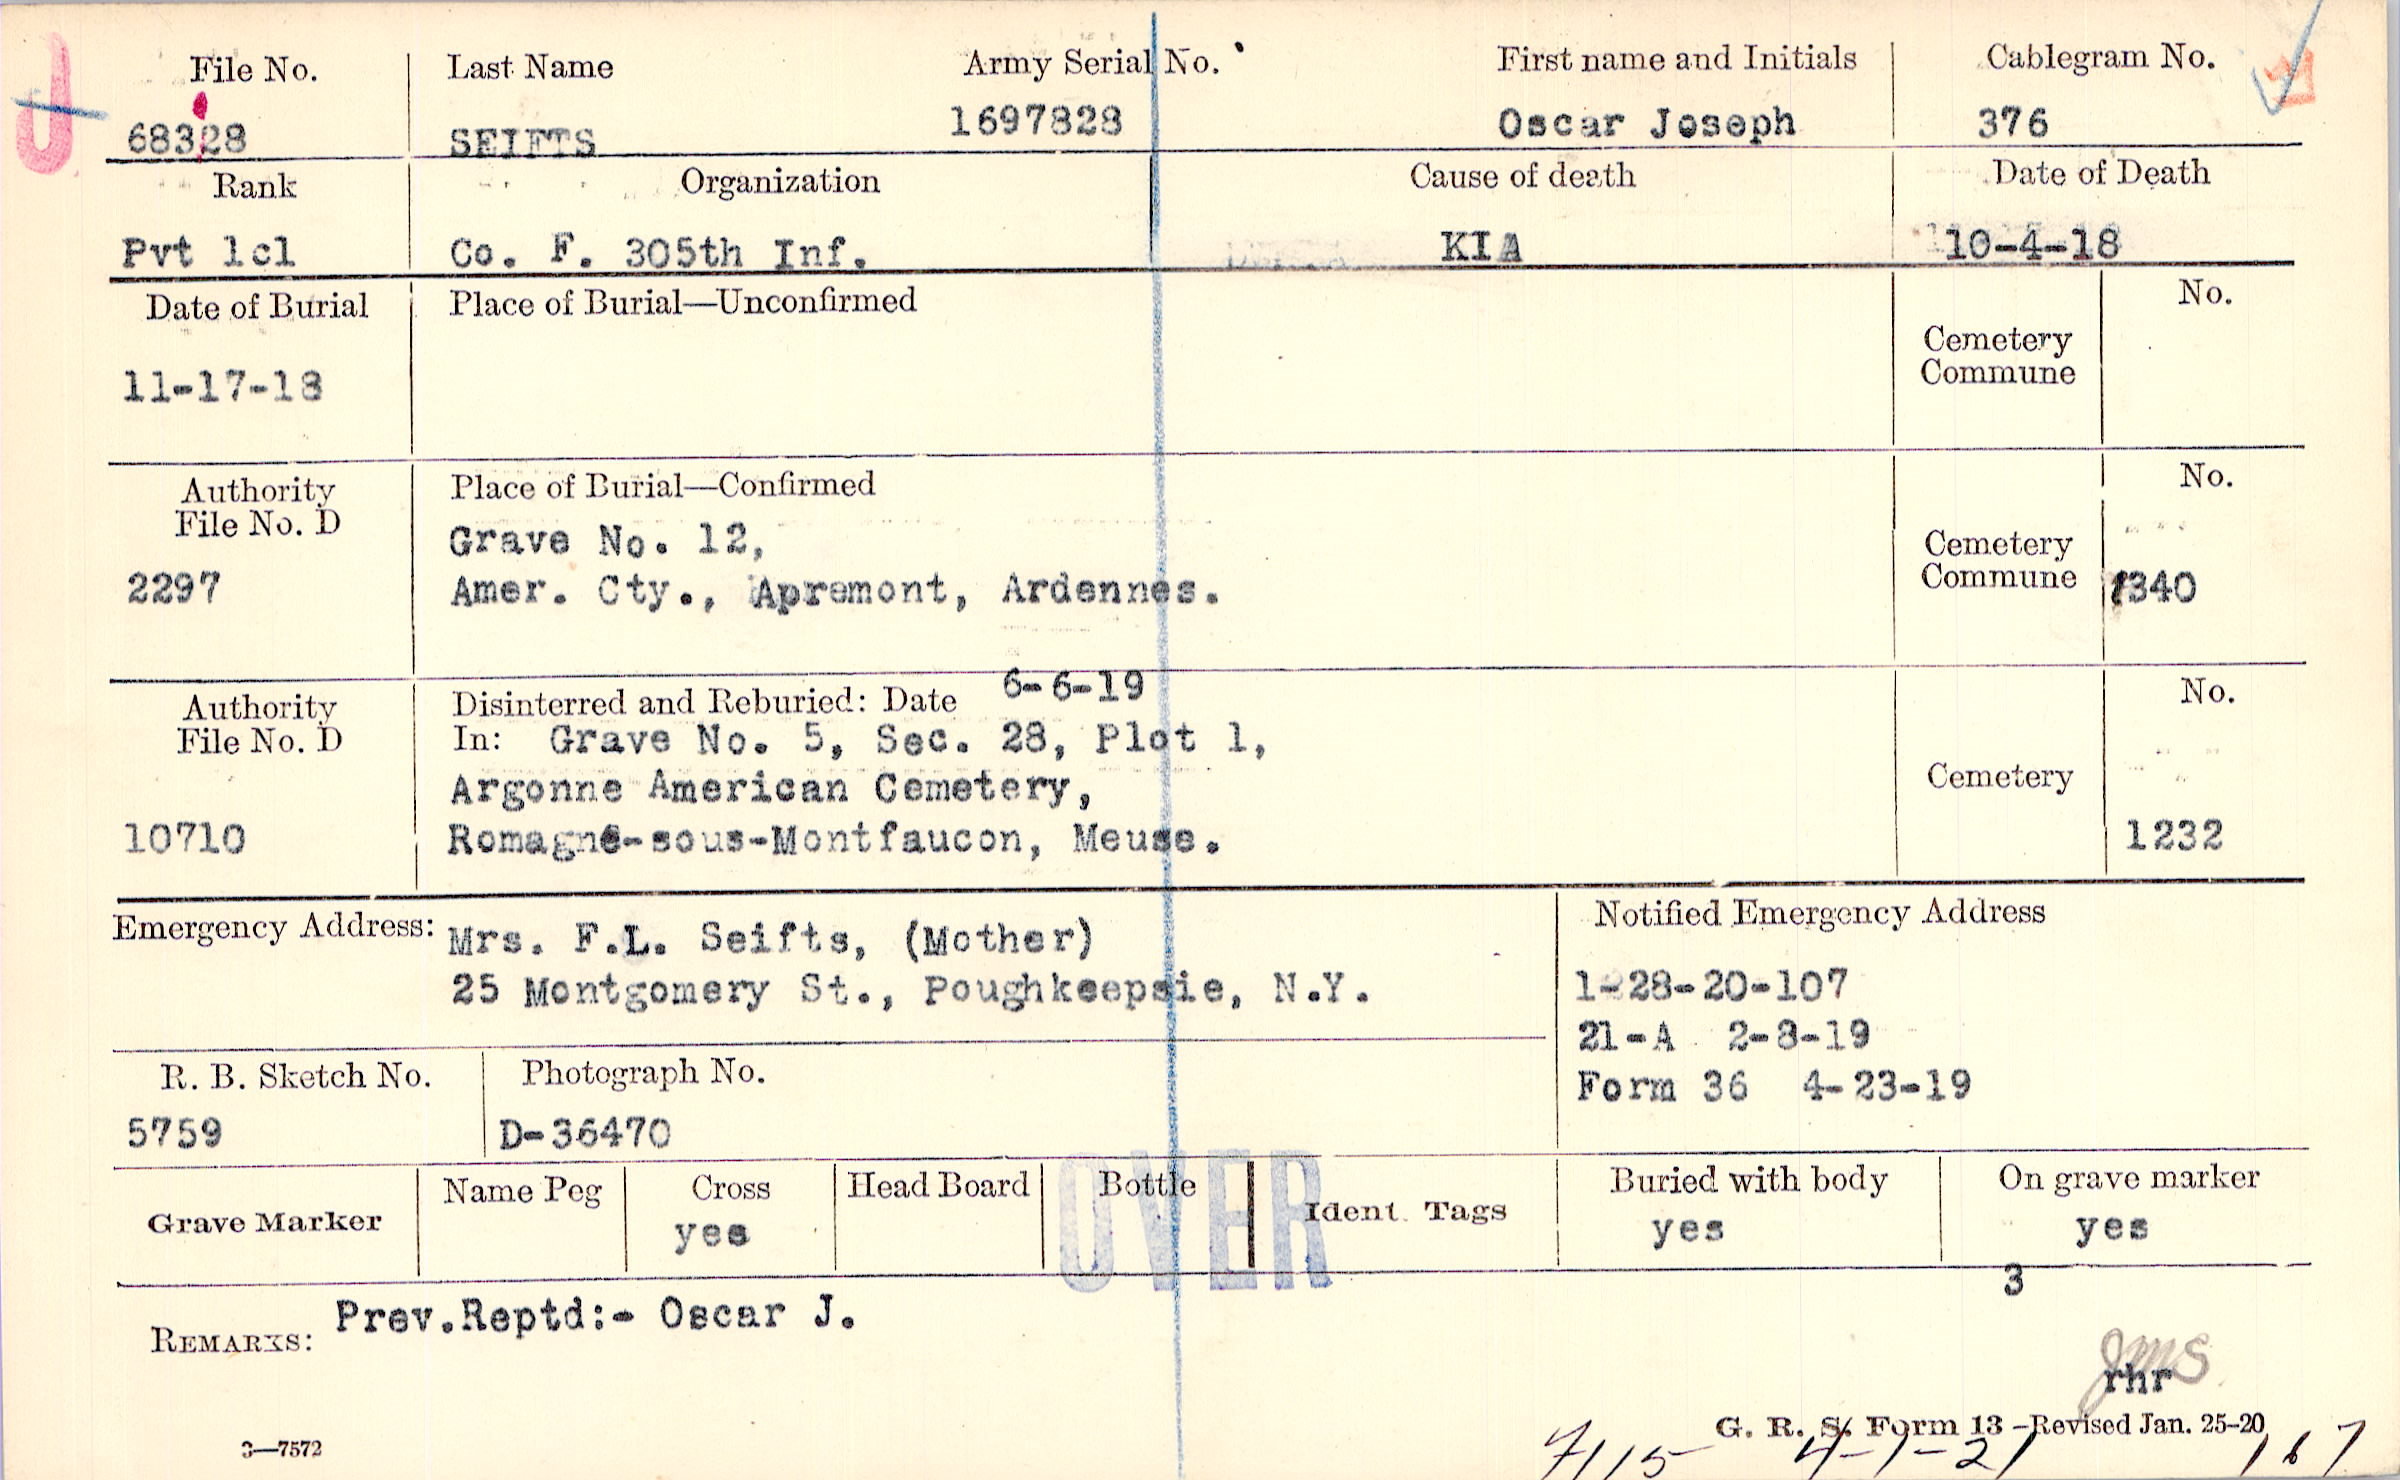 File No. Last Name Army Serial No. First name and Initials Cablegram No.
68328 SEIFTS 1697828 Oscar Joseph 376
Rank Organization Cause of death Date of Death
Pvt 1cl Co. F. 305th Inf. KIA 10-4-18
Date of Burial Place of Burial—Unconfirmed No.
Cemetery
Commune
11-17-18
Authority Place of Burial—Confirmed No.
File No. D
Grave No. 12,
Cemetery
2297 Amer. Cty., Apremont, Ardennes. Commune 1340
Authority Disinterred and Reburied: Date 6-6-19 No.
File No. D In: Grave No. 5, Sec. 28, Plot 1,
Argonne American Cemetery, Cemetery
10710 Romagne-sous-Montfaucon, Meuse. 1232
Emergency Address: Mrs. F.L. Seifts, (Mother) Notified Emergency Address
25 Montgomery St., Poughkeepsie, N.Y. 1-28-20-107
21-A 2-8-19
R. B. Sketch No. Photograph No. Form 36 4-23-19
5759 D-36470
OVER
Grave Marker Name Peg Cross Head Board Bottle Ident. Tags Buried with body On grave marker
yes yes yes
3
REMARKS: Prev.Reptd:- Oscar J.
JMS
rhr
G. R. S. Form 13—Revised Jan. 25-20
3—7572 7115 4-1-21 167